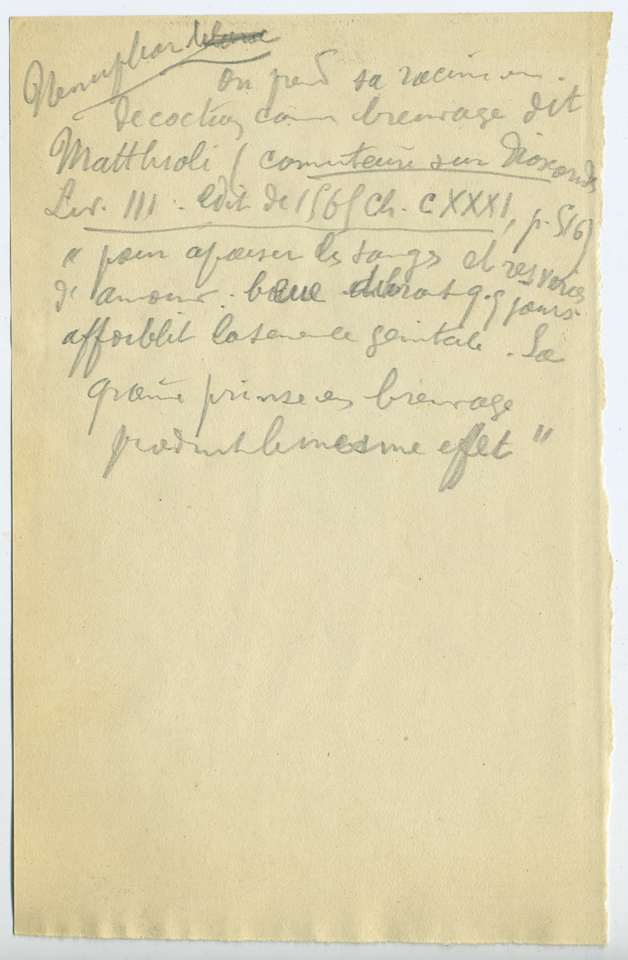 Nenuphar
on prend sa racine en
decoction comme breuvage dit
Matthioli (commentaire sur Dioscoride
Liv. III. edit de 1565 Ch. CXXXI, p. 516)
" pour apaiser les songes et resveries
d'amour. beue q.q jours
affoiblit la semence genitale. La
graine prinse en breuvage
produict le mesme effet "